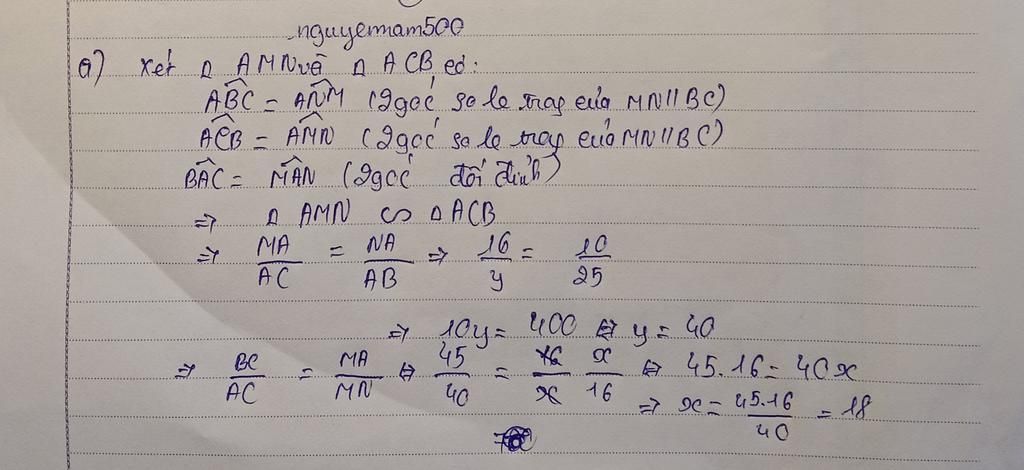 nguyemam500
a) Xét Δ AMN và Δ ACB có:
\widehat{ABC} = \widehat{ANM} (2 góc so le trog của MN // BC)
\widehat{ACB} = \widehat{AMN} (2 góc so le trog của MN // BC)
\widehat{BAC} = \widehat{MAN} (2 góc đối đỉnh)
⇒ Δ AMN ∽ Δ ACB
⇒ MA/AC = NA/AB ⇒ 16/y = 10/25
⇒ 10y = 400 ⇔ y = 40
⇒ BC/AC = MA/MN ⇔ 45/40 = x/16 ⇔ 45.16 = 40x
⇒ x = 45.16/40 = 18